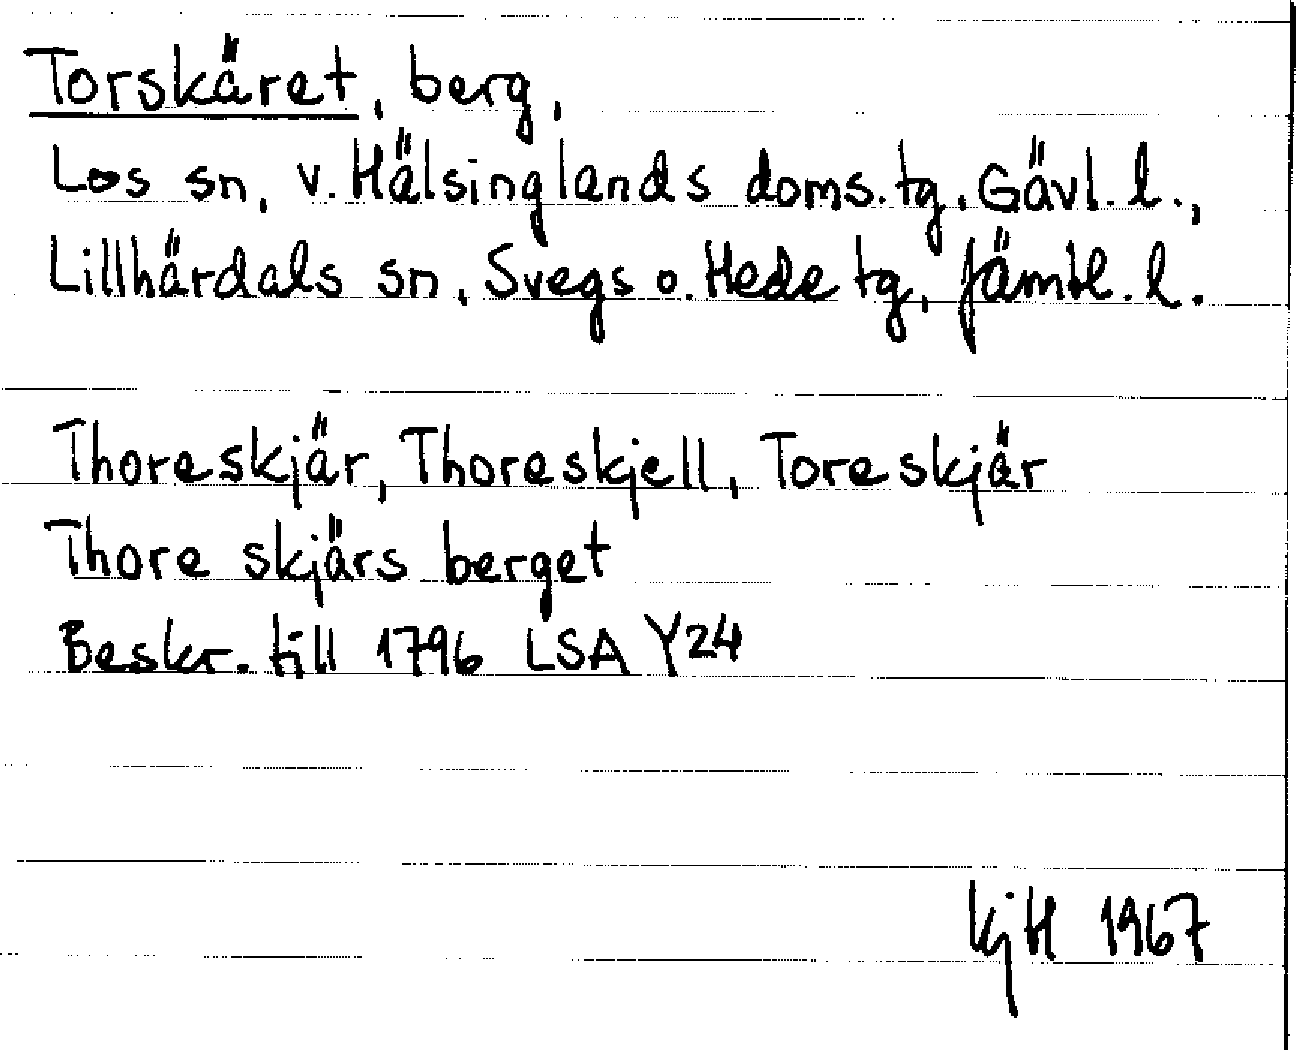 Torskäret, berg,
Los sn, v. Hälsinglands doms. tg, Gävl. l.,
Lillhärdals sn, Svegs o. Hede tg, Jämtl. l.
Thoreskjär, Thoreskjell, Toreskjär
Thore skjärs berget
Beskr. till 1796 LSA Y24
KjH 1967